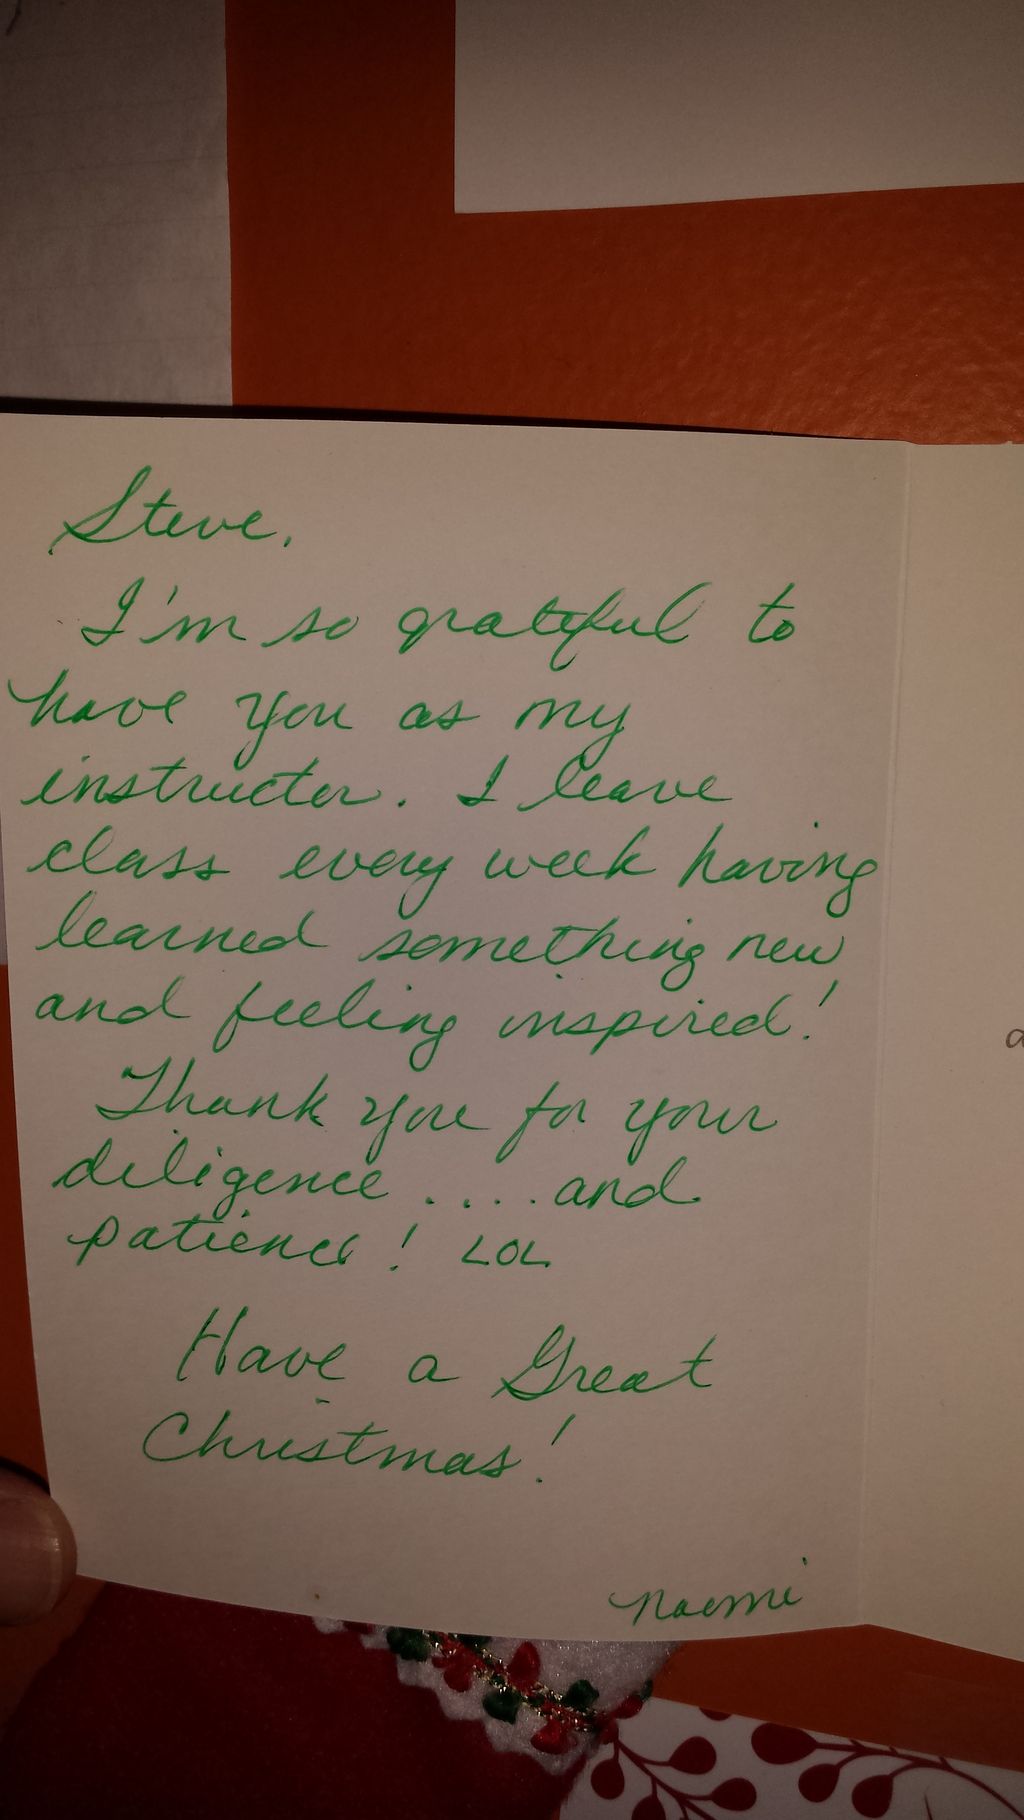 Steve,
I'm so grateful to
have you as my
instructor. I leave
class every week having
learned something new
and feeling inspired!
Thank you for your
diligence .... and
patience! LOL
Have a Great
Christmas!
Naomi